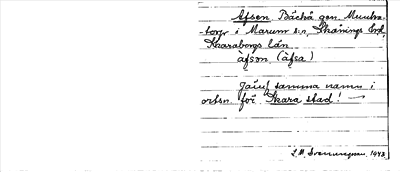 Afsen. Bäckä gen. Munka-
-torp i Marum s:n, Skånings hd,
Skaraborgs län.
àfsən. (àfsa)
Jämf samma namn i
ortsn. för Skara stad! —
1943